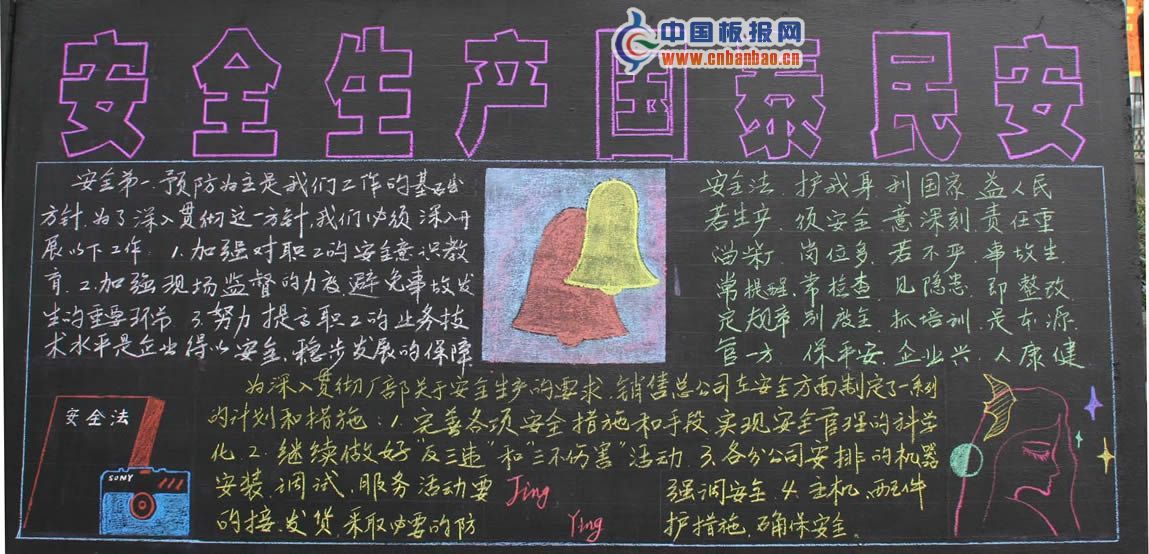 中国板报网
www.cnbanbao.cn
安全生产国泰民安
安全第一、预防为主是我们工作的基础
方针，为了深入贯彻这一方针，我们必须深入开
展以下工作：1.加强对职工的安全意识教
育．2.加强现场监督的力度，避免事故发
生的重要环节．3.努力提高职工的业务技
术水平是企业得以安全、稳步发展的保障
安全法 护我身 利国家 益人民
若生产 须安全 意深刻 责任重
岗位多 若不严 事故生
常提醒、常检查、见隐患 即整改
定规章 别废全 抓培训 是本源
官一方 保平安 企业兴 人康健
为深入贯彻厂部关于安全生产的要求，销售总公司在安全方面制定了一系列
的计划和措施：1.完善各项安全措施和手段，实现安全官理的科学
化．2.继续做好“反三违”和“三不伤害”活动．3.各分公司安排的机器
安装、调试、服务活动要 强调安全．4.主机、配件
的接、发货，采取必要的防 护措施，确保安全．
Jing
Ying
安全法
SONY